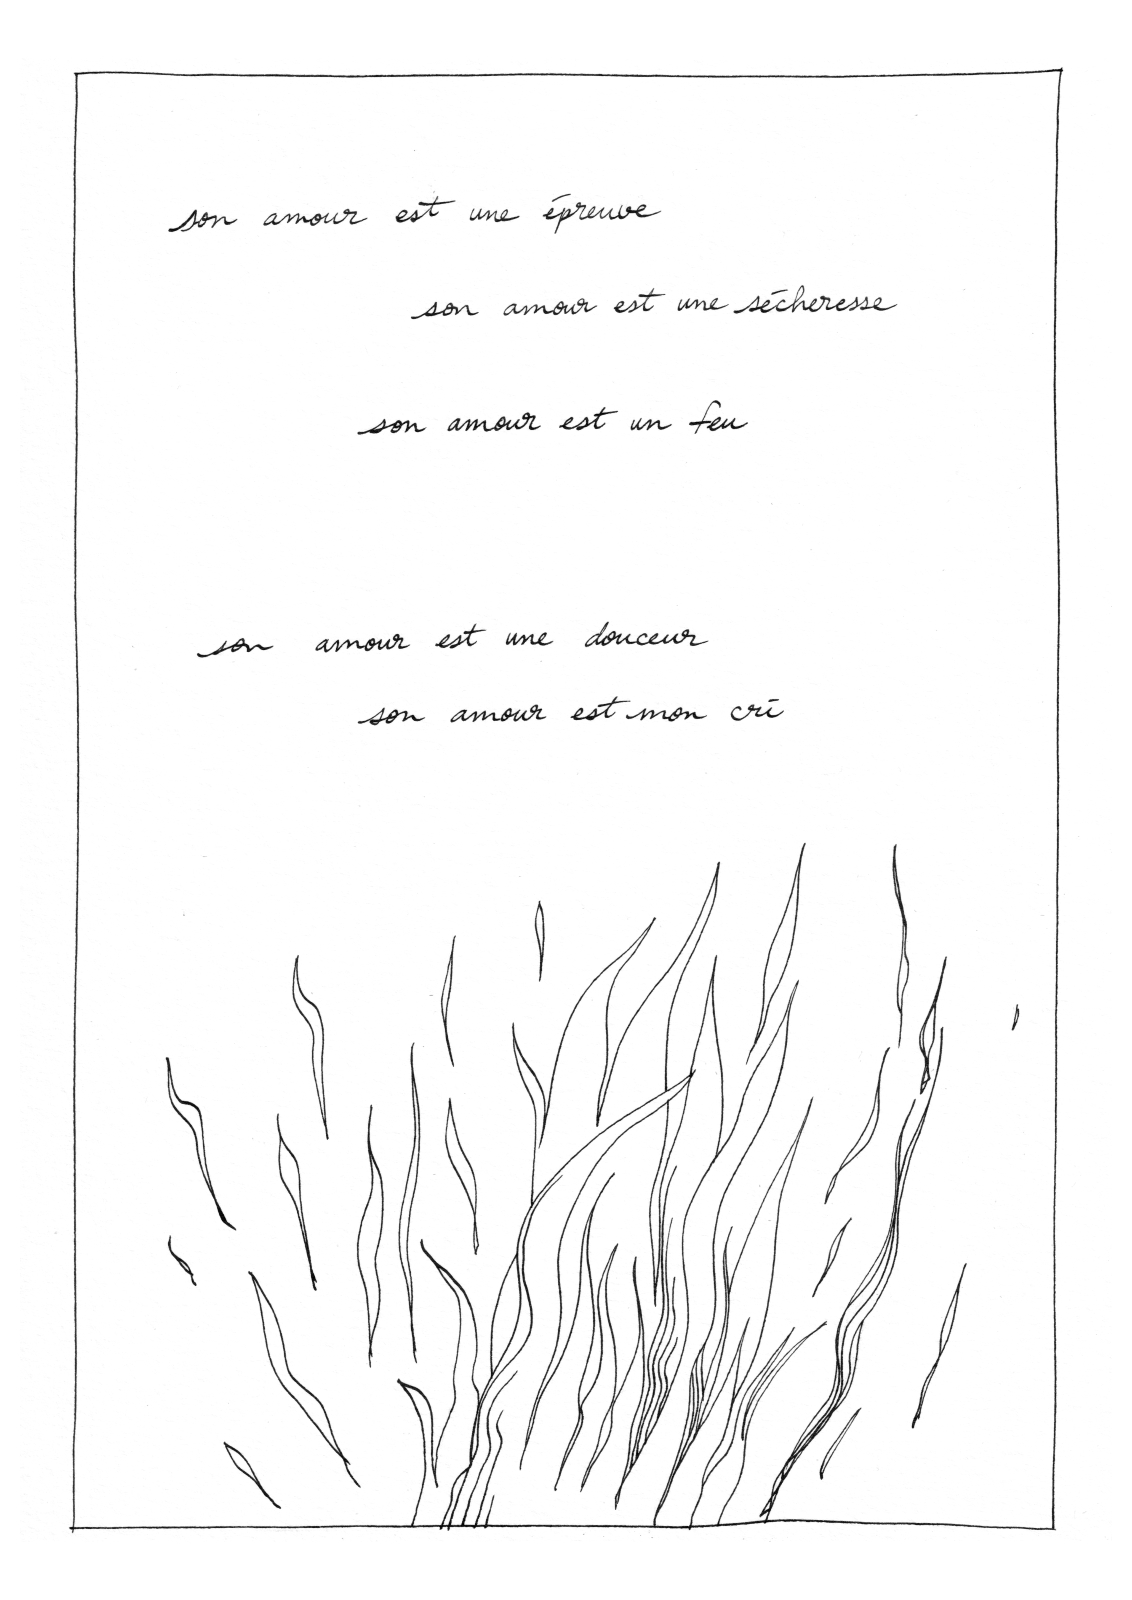 son amour est une épreuve
son amour est une sécheresse
son amour est un feu
son amour est une douceur
son amour est mon cri